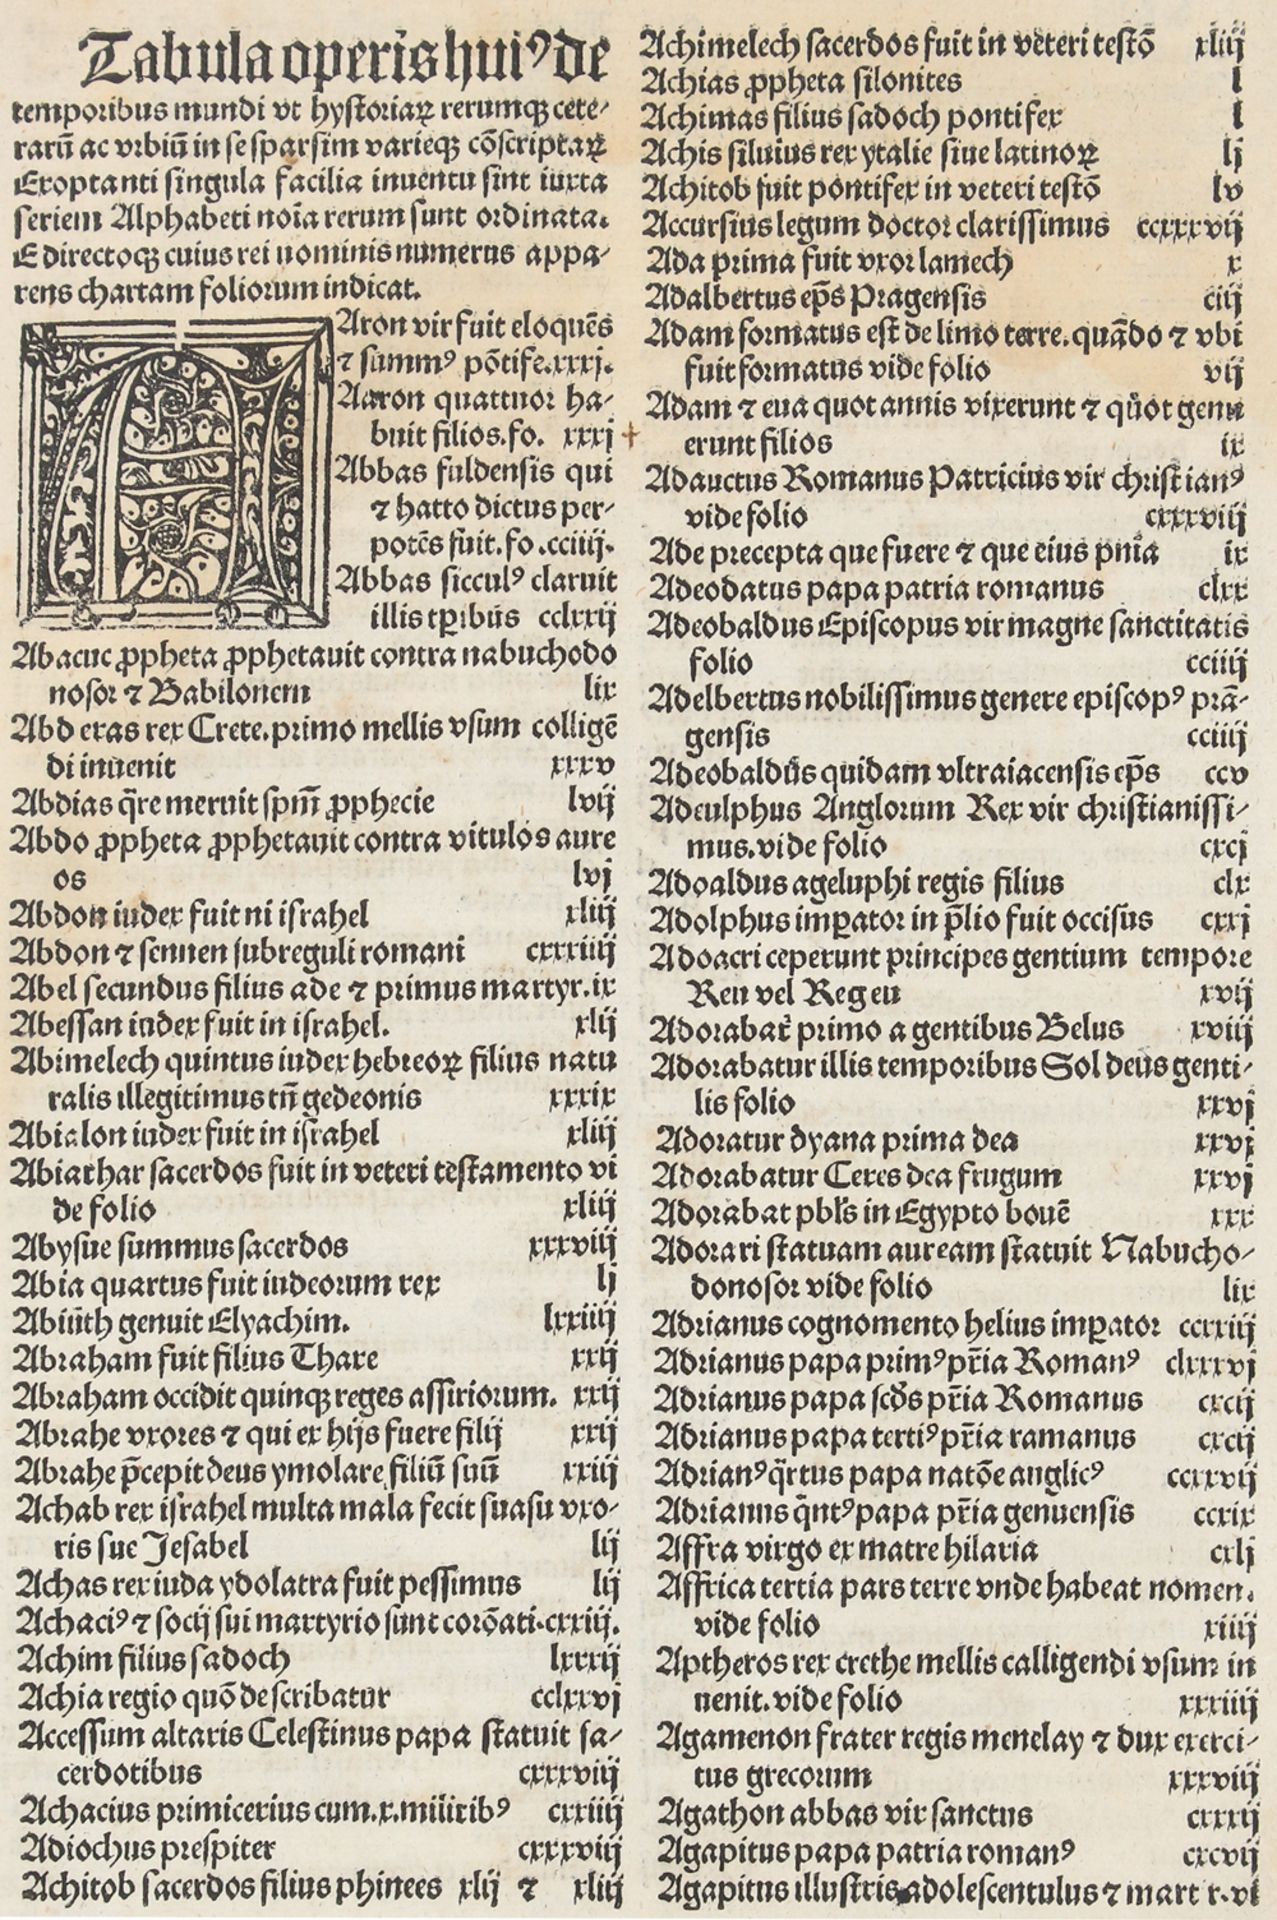 Tabula operis huiꝰ de
temporibus mundi vt hystoriaꝝ rerumqꝫ cete-
rarū ac vrbiū in se sparsim varieqꝫ cōscriptaꝝ
Exoptanti singula facilia inuentu sint iuxta
seriem Alphabeti noīa rerum sunt ordinata.
E directoqꝫ cuius rei nominis numerus appa-
rens chartam foliorum indicat.
Aron vir fuit eloquēs
⁊ summꝰ pōtife.xxxj.
Aaron quattuor ha-
buit filios.fo. xxxj
Abbas fuldensis qui
⁊ hatto dictus per-
potēs fuit.fo.cciiij.
Abbas sicculꝰ claruit
illis tꝑibus cclxxij
Abacuc ꝓpheta ꝓphetauit contra nabuchodo
nosor ⁊ Babilonem lix
Abd eras rex Crete.primo mellis vsum colligē
di inuenit xxxv
Abdias q̄re meruit spm̄ ꝓphecie lvij
Abdo ꝓpheta ꝓphetauit contra vitulos aure
os lvj
Abdon iudex fuit ni israhel xliij
Abdon ⁊ sennen subreguli romani cxxxiiij
Abel secundus filius ade ⁊ primus martyr.ix
Abessan iudex fuit in israhel. xlij
Abimelech quintus iudex hebreoꝝ filius natu
ralis illegitimus tn̄ gedeonis xxxix
Abialon iudex fuit in israhel xliij
Abiathar sacerdos fuit in veteri testamento vi
de folio xliij
Abysue summus sacerdos xxxviij
Abia quartus fuit iudeorum rex lj
Abiuth genuit Elyachim. lxxiiij
Abraham fuit filius Thare xxij
Abraham occidit quinqꝫ reges assiriorum. xxij
Abrahe vxores ⁊ qui ex hijs fuere filij xxij
Abrahe p̄cepit deus ymolare filiū suū xxiij
Achab rex israhel multa mala fecit suasu vxo-
ris sue Jesabel lij
Achas rex iuda ydolatra fuit pessimus lij
Achaciꝰ ⁊ socij sui martyrio sunt corōati.cxxiij.
Achim filius sadoch lxxxij
Achia regio quō describatur cclxxvj
Accessum altaris Celestinus papa statuit sa-
cerdotibus cxxxviij
Achacius primicerius cum.x.militibꝰ cxxiiij
Adiochus prespiter cxxxviij
Achitob sacerdos filius phinees xlij ⁊ xliij
Achimelech sacerdos fuit in veteri testō xliij
Achias ꝓpheta silonites l
Achimas filius sadoch pontifex l
Achis siluius rex ytalie siue latinoꝝ lj
Achitob fuit pontifex in veteri testō lv
Accursius legum doctor clarissimus ccxxxvij
Ada prima fuit vxor lamech x
Adalbertus ep̄s Pragensis ciij
Adam formatus est de limo terre.quādo ⁊ vbi
fuit formatus vide folio vij
Adam ⁊ eua quot annis vixerunt ⁊ quot genu
erunt filios ix
Adauctus Romanus Patricius vir christianꝰ
vide folio cxxxviij
Ade precepta que fuere ⁊ que eius pnīa ix
Adeodatus papa patria romanus clxx
Adeobaldus Episcopus vir magne sanctitatis
folio cciiij
Adelbertus nobilissimus genere episcopꝰ prā-
gensis cciiij
Adeobaldus quidam vltraiacensis ep̄s ccv
Adeulphus Anglorum Rex vir christianissi-
mus.vide folio cxcj
Adoaldus ageluphi regis filius clx
Adolphus imꝑator in p̄lio fuit occisus cxxj
Adoacri ceperunt principes gentium tempore
Reu vel Regeu xvij
Adorabat᷑ primo a gentibus Belus xviij
Adorabatur illis temporibus Sol deus genti-
lis folio xxvj
Adoratur dyana prima dea xxvj
Adorabatur Ceres dea frugum xxvj
Adorabat pbl̄s in Egypto bouē xxx
Adorari statuam auream statuit Nabucho-
donosor vide folio lix
Adrianus cognomento helius imꝑator ccxxiij
Adrianus papa primꝰ pr̄ia Romanꝰ clxxxvj
Adrianus papa scd̄s pr̄ia Romanus cxcij
Adrianus papa tertiꝰ pr̄ia ramanus cxcij
Adrianꝰ q̄rtus papa natōe anglicꝰ ccxxvij
Adrianus q̄ntꝰ papa pr̄ia genuensis ccxix
Affra virgo ex matre hilaria cxlj
Affrica tertia pars terre vnde habeat nomen.
vide folio xiiij
Aptheros rex crethe mellis calligendi vsum in
uenit.vide folio xxxiiij
Agamenon frater regis menelay ⁊ dux exerci-
tus grecorum xxxviij
Agathon abbas vir sanctus cxxxij
Agapitus papa patria romanꝰ cxcvij
Agapitus illustris adolescentulus ⁊ mart